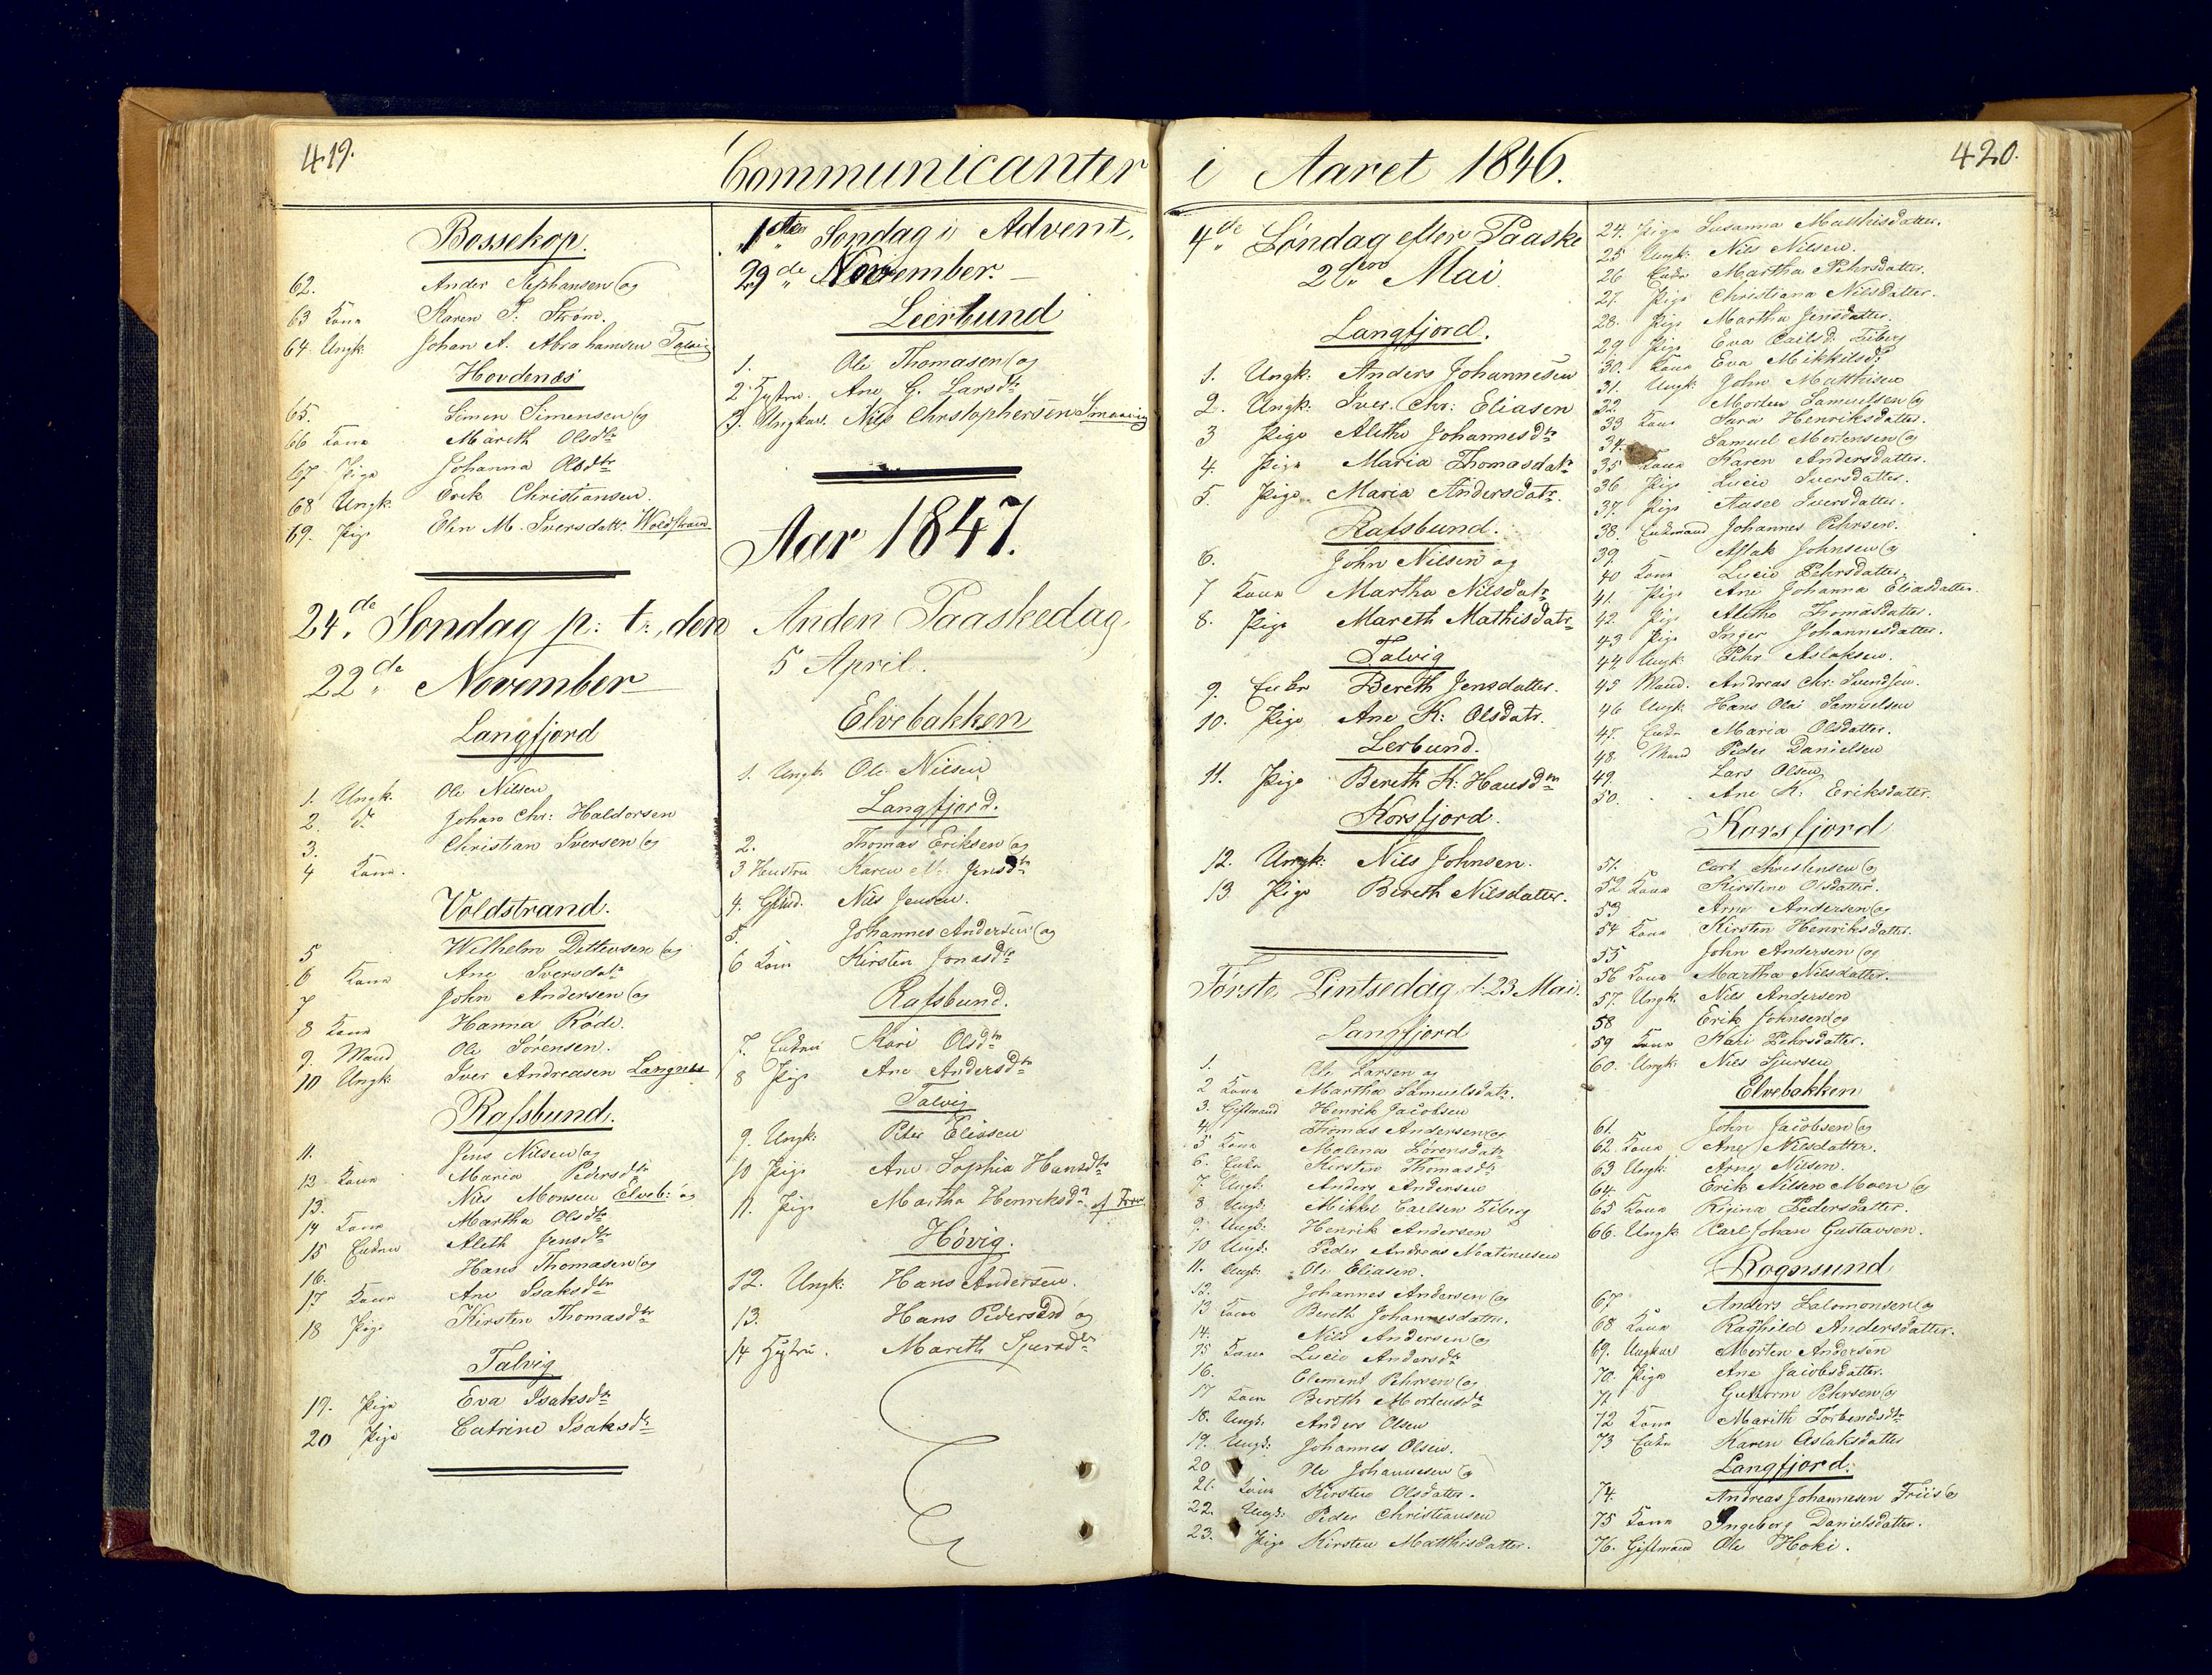 419.
Communicanter
Bossekop.
62. Ander Stephansen og
63 Kone Karen J. Strøm.
64. Ungk. Johan A. Abrahamsen Talvig
Hovdenæs
65. Simon Simonsen og
66 Kone Mareth Olsdtr
67 Pige Johanna Olsdtr
68 Ungk. Erik Christiansen.
69. Pige Elen M. Iversdatt. Woldstrand
24de Søndag p: t:, den
22de November
Langfjord
1. Ungk. Ole Nilsen
2. do Johan Chr: Haldorsen
3. Christian Iversen og
4 Kone.
Voldstrand.
5 Wilhelm Ditlevsen og
6 Kone Ane Iversdatr
7 John Andersen og
8 Kone Hanna Rode.
9. Mand Ole Sørensen.
10 Ungk. Iver Andreasen Langnes
Rafsbund.
11. Jens Nilsen og
12 Kone Maria Pedersdtr
13. Nils Monsen Elveb: og
14 Kone Martha Olsdtr
15 Enken Aleth Jensdtr
16. Hans Thomasen og
17 Kone Ane Isaksdtr
18 Pige Kirsten Thomasdtr
Talvig
19. Pige Eva Isaksdtr
20 Pige Catrine Isaksdtr
1ste Søndag i Advent,
29de November.
Leerbund
1. Ole Thomasen og
2 Hustru. Ane G. Larsdtr
3. Ungkarl. Nils Christophersen
Aar 1847.
Anden Paaskedag,
5 April.
Elvebakken
1. Ungk. Ole Nilsen
Langfjord.
2. Thomas Eriksen og
3 Hustru Karen M. Jensdtr
4. Gftmd. Nils Jensen.
5. Johannes Andersen og
6 Kone Kirsten Jonasdtr
Rafsbund.
7. Enken Kari Olsdtr
8 Pige Ane Andersdtr
Talvig
9. Ungk: Peter Eliasen
10 Pige Ane Sophia Hansdtr
11. Pige Martha Henriksdtr
Høvig.
12. Ungk: Hans Andersen.
13. Hans Pedersen og
14 Hustru. Mareth Sjursdtr
i Aaret 1846.
420.
4de Søndag efter Paaske
2den Mai.
Langfjord.
1. Ungk: Anders Johannesen
2. Ungk: Iver Chr: Eliasen
3 Pige Alethe Johannesdtr
4. Pige Maria Thomasdatr
5. Pige. Maria Andersdatr.
Rafsbund.
6. John Nilsen og
7 Kone Martha Nilsdatr
8. Pige Mareth Mathisdatr
Talvig
9. Enke Bereth Jensdatter.
10. Pige Ane K: Olsdatr.
Lerbund.
11. Pige Bereth K: Hansdtr
Korsfjord.
12. Ungk: Nils Johnsen.
13 Pige Bereth Nilsdatter.
Første Pintsedag, d: 23 Mai.
Langfjord
1. Ole Larsen og
2 Kone Martha Samuelsdatr.
3. Giftmand Henrik Jacobsen
4. Thomas Andersen og
5 Kone Malena Sørensdatr
6. Enke Kirsten Thomasdtr
7. Ungk: Anders Andersen
8 Ungk: Mikkel Carlsen Fiberg
9. Ungk: Henrik Andersen
10 Ungk: Peder Andreas Matinusen
11. Ungk: Ole Eliasen.
12. Johannes Andersen og
13 Kone Bereth Johannesdatter.
14. Nils Andersen og
15 Kone Lucie Andersdtr
16. Clement Pehrsen og
17 Kone Bereth Mortensdtr
18. Ungk: Anders Olsen
19. Ungk: Johannes Olsen.
20 Ole Johannesen og
21. Kone Kirsten Olsdatter.
22. Ungk: Peder Christiansen
23. Pige Kirsten Matthisdatter.
24. Pige Susanna Matthisdatter.
25 Ungk: Nils Nilsen.
26 Enke Martha Pehrsdatter.
27. Pige Christiana Nilsdatter.
28. Pige Martha Jensdatter.
29 Pige Eva Carlsd: Fiberg
30. Kone Eva Mikkelsdtr
31. Ungk: John Matthisen
32 Morten Samuelsen og
33 Kone Sara Henriksdatter.
34. Samuel Mortensen og
35 Kone Karen Andersdatter.
36 Pige Lucie Iversdatter.
37. Pige Aasel Iversdatter.
38. Enkemand Johannes Pehrsen.
39. Aslak Johnsen og
40 Kone Lucie Pehrsdatter.
41. Pige Ane Johanna Eliasdatter.
42. Pige Alethe Thomasdatter.
43 Pige Inger Johannesdatter.
44 Ungk: Pehr Aslaksen.
45 Mand. Andreas Chr: Svendsen.
46 Ungk: Hans Olai Samuelsen
47. Enke Maria Olsdatter.
48. Mand Peder Danielsen
49. Lars Olsen
50. Ane K: Eriksdatter.
Korsfjord
51. Carl Christensen og
52 Kone Kirstine Olsdatter.
53 Arne Andersen og
54 Kone Kirsten Henriksdatter.
55 John Andersen og
56 Kone Martha Nilsdatter.
57. Ungk. Nils Andersen
58 Erik Johnsen og
59 Kone Kari Pehrsdatter.
60. Ungk: Nils Sjursen
Elvebakken
61. John Jacobsen og
62. Kone Ane Nilsdatter.
63 Ungk: Arne Nilsen.
64. Erik Nilsen Moen og
65 Kone Regina Pedersdatter.
66. Ungk. Carl Johan Gustavsen.
Rognsund
67 Anders Salomonsen og
68 Kone Raghild Andersdatter.
69. Ungkarl Morten Andersen
70. Pige Ane Jacobsdatter.
71 Guttorm Pehrsen og
72 Kone Marith Torbensdtr
73 Enke Karen Aslaksdatter
Langfjord.
74. Andreas Johannesen Friis og
75 Kone Ingeborg Danielsdatter.
76. Giftmand Ole Hoki.